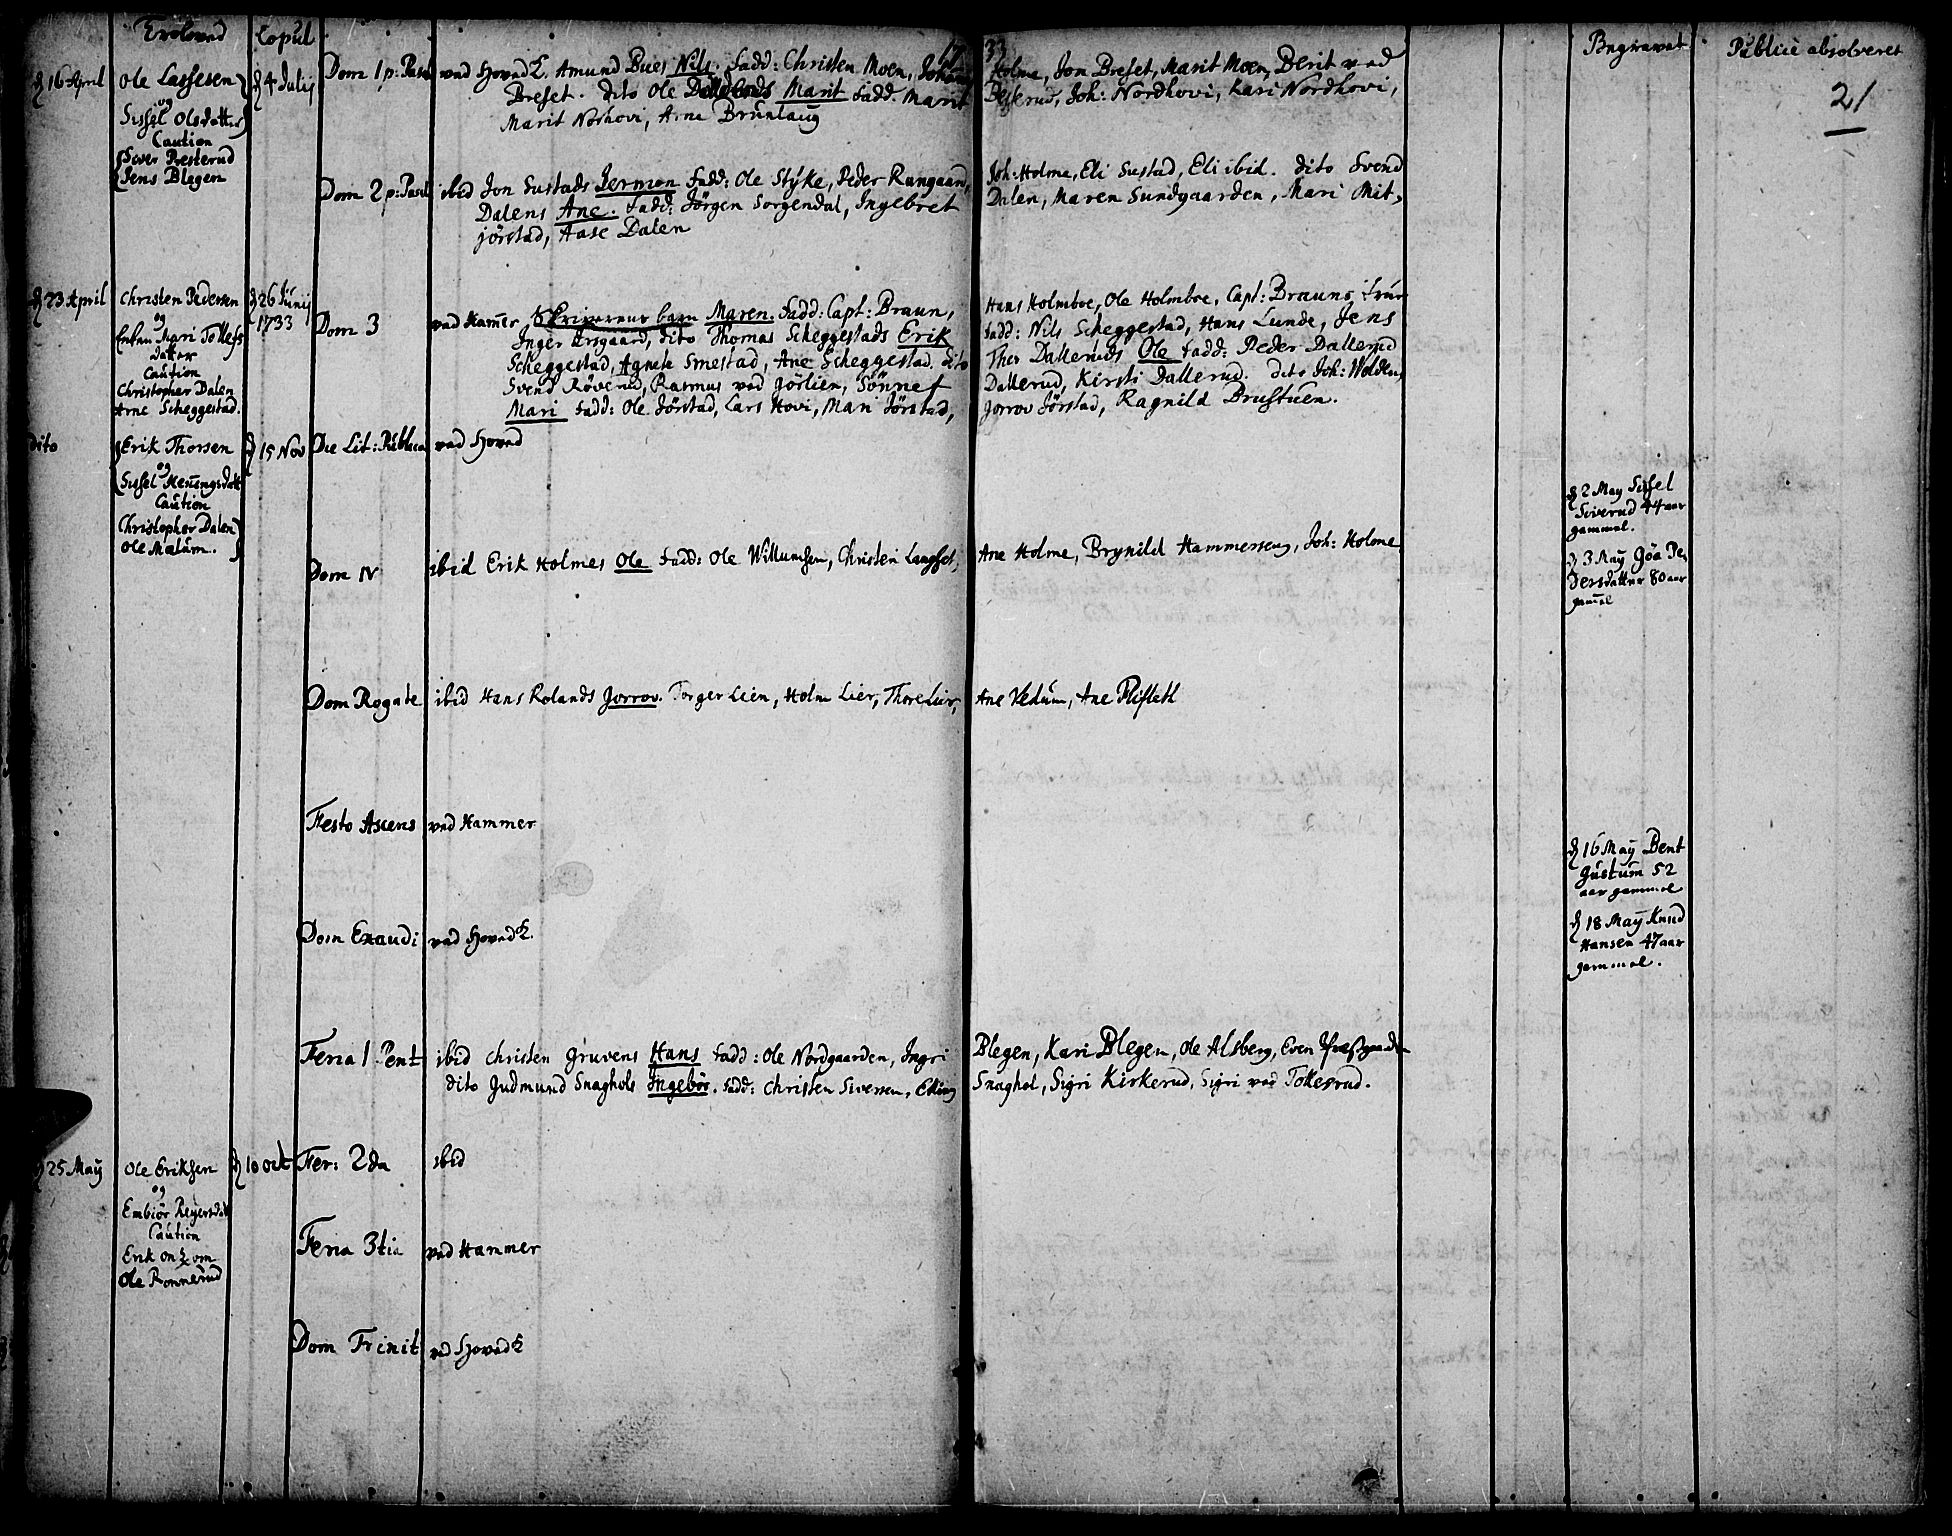 Troloved Copul 1733 Begravet Publicè absolveret
21
d 16 April Ole Lassesen d 4 Julij
og
Sissel Olsdatter
Caution
Siver Presterud
Jens Blegen
Dom 1 p: Pasch ved Hoved K. Amund Bues Nils. Fadd: Christen Moen, Johan Holme, Jon Breset, Marit Moen, Berit ved
Breset. dito Ole Marit Fadd. Marit Joh: Nordhovi, Kari Nordhovi,
Marit Norhovi, Arne Brunlaug
Dom 2 p: Pasch ibid Jon Sustads Fadd: Ole Styke, Peder Rungaard, Joh: Holme, Eli Sustad, Eli ibid. dito Svend
Dalens Ane. Fadd: Jörgen Sorgendal, Ingebret Dalen, Maren Sundgaarden, Mari Mit-
jörstad, Aase Dalen
d 23 April Christen Pedersen d 26 Junij
og 1733
Enken Mari Tollefs
datter
Caution
Christopher Dalen
Arne Scheggestad.
Dom 3 ved Hamer Skriverens barn Maren. Fadd: Capt: Braun, Hans Holmboe, Ole Holmboe, Capt: Brauns frue
Inger dito Thomas Scheggestads Erik Fadd: Nils Scheggestad, Hans Lunde, Jens
Scheggestad, Agnete Smestad, Ane Scheggestad. dito Thor Dalleruds Ole Fadd: Peder Dallerud
Svend Röverud, Rasmus ved Görlien, Sönnef Dallerud, Kirsti Dallerud. dito Joh: Woldens
Mari Fadd: Ole Jörstad, Lars Hovi, Mari Jörstad, Jorrov Jörstad, Ragnild Brustuen.
dito Erik Thorsen d 15 Nov Die Lit: Publica ved Hoved
og
Sissel Henningsdatt
Caution
Christopher Dalen
Ole Malum.
d 2 May Sissel
Siverud 44 aar
gammel.
Dom IV ibid Erik Holmes Ole Fadd: Ole Willumsen, Christen Langset, Ane Holme, Brynild Hammerseng, Joh: Holme
d 3 May Göa Pe-
dersdatter 80 aar
gamel
Dom Rogate ibid Hans Rolands Jorrov. Torger Lien, Holm Lier, Thore Lier, Ane Vedum, Ane Plisseth
Festo Ascens ved Hammer
d 16 May Bent
Gustum 52
aar gammel
Dom Exaudi ved Hoved K.
d 18 May Knud
Hansen 47 aar
gammel.
Feria 1 Pent ibid Christen Gruvens Hans Fadd: Ole Nordgaarden, Ingri Blegen, Kari Blegen, Ole Alsberg, Even
dito Judmund Snaghols Ingebör. Fadd: Christen Siversen, Elling Snaghol, Sigri Kirkerud, Sigri ved Tollesrud.
d 25 May Ole Eriksen d 18 Oct Fer: 2da ibid
og
Embiör Reyersdat
Caution
Erik
Ole Ronnerud
Feria 3tia ved Hammer
Dom Trinit ved Hoved K